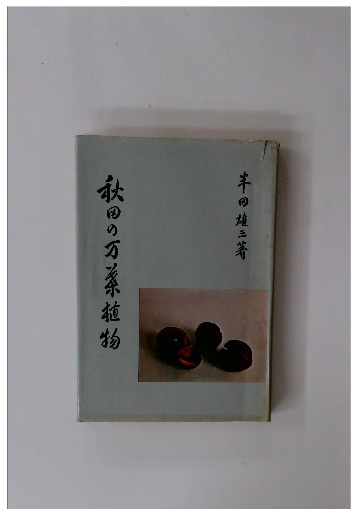 半田雄三著
秋田の万葉植物